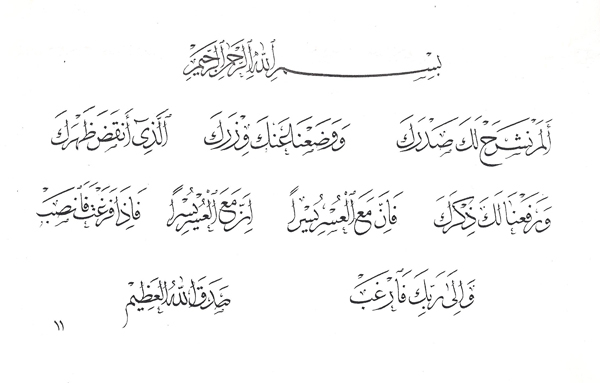 بِسْمِ اللهِ الرَّحْمٰنِ الرَّحِيمِ
أَلَمْ نَشْرَحْ لَكَ صَدْرَكَ وَوَضَعْنَا عَنكَ وِزْرَكَ الَّذِي أَنقَضَ ظَهْرَكَ
وَرَفَعْنَا لَكَ ذِكْرَكَ فَإِنَّ مَعَ الْعُسْرِ يُسْراً إِنَّ مَعَ الْعُسْرِ يُسْراً فَإِذَا فَرَغْتَ فَانصَبْ
وَإِلَىٰ رَبِّكَ فَارْغَبْ صَدَقَ اللهُ الْعَظِيمْ
١١